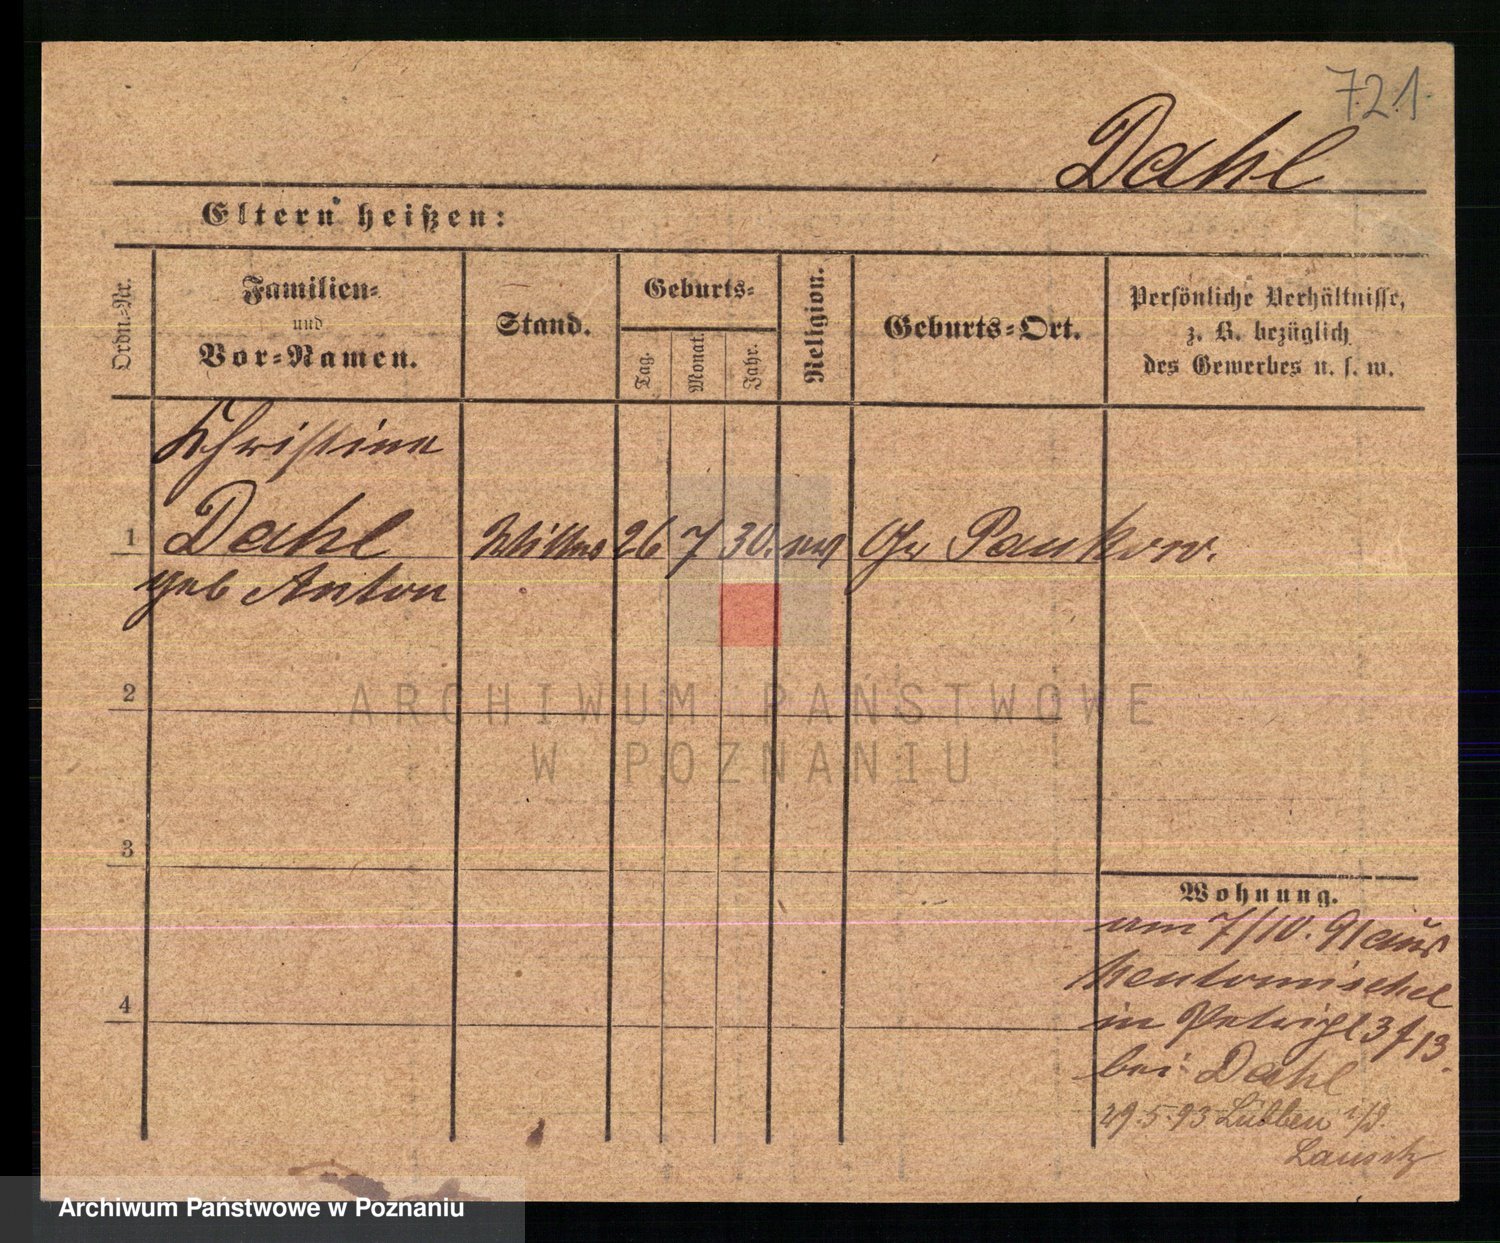 721.
Dahl
Eltern heißen:
Ordn.-Nr.
Familien-
und
Vor-Namen.
Stand.
Geburts-
Tag.
Monat.
Jahr.
Religion.
Geburts-Ort.
Persönliche Verhältnisse,
z. B. bezüglich
des Gewerbes u. s. w.
Christine
1 Dahl Wittwe 26 7 30. ev Gr Pankow.
geb Anton
2
ARCHIWUM PAŃSTWOWE
W POZNANIU
3
Wohnung.
am 7/10. 91 aus
Neutomischel
in Petripl 3 13.
4
bei Dahl
29.5.93 Lübben i/d.
Lausitz
Archiwum Państwowe w Poznaniu